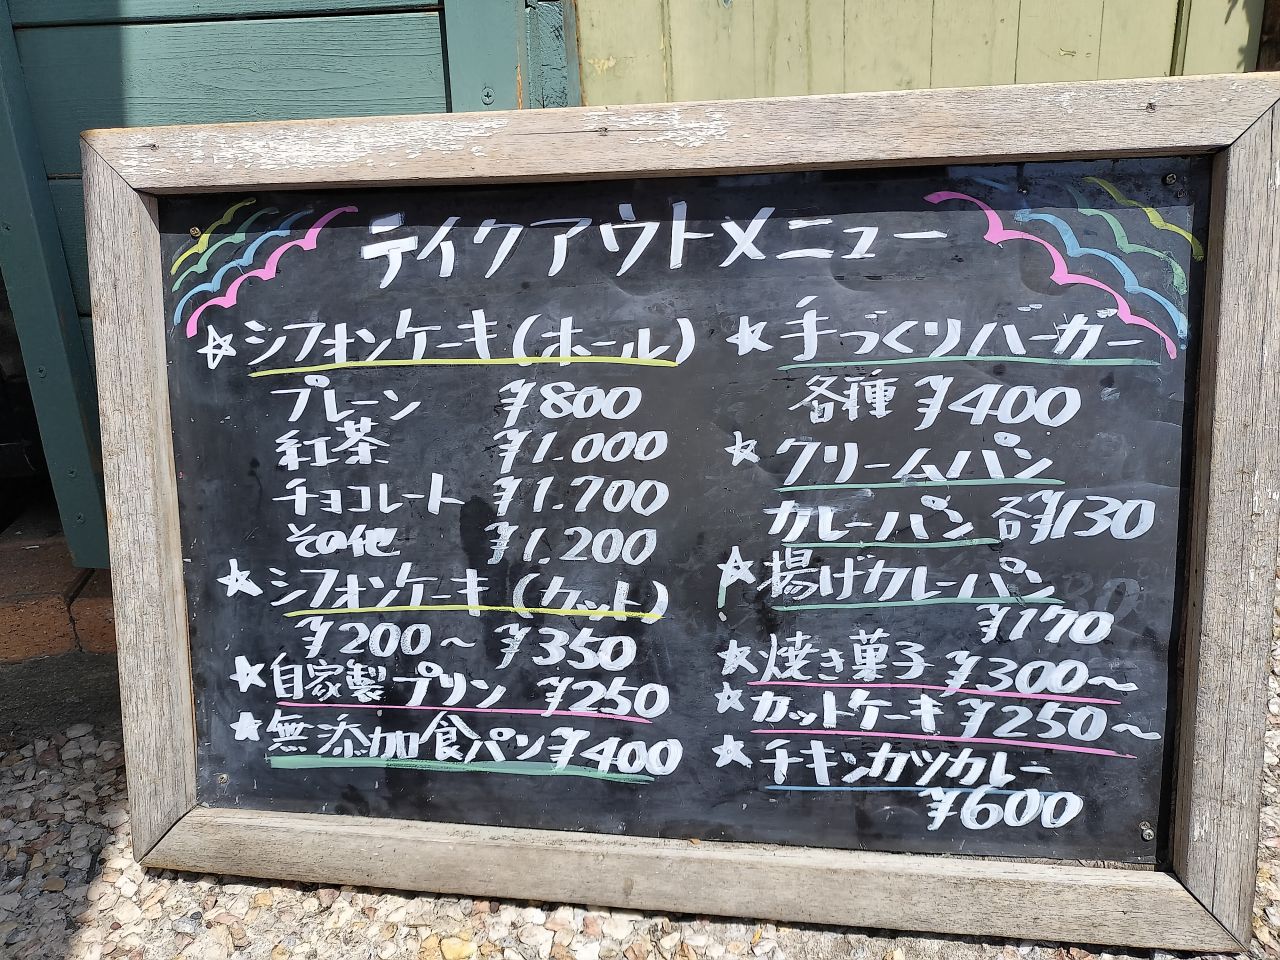 テイクアウトメニュー
☆シフォンケーキ(ホール)
プレーン ¥800
紅茶 ¥1.000
チョコレート ¥1.700
その他 ¥1.200
★シフォンケーキ(カット)
¥200～¥350
★自家製プリン ¥250
★無添加食パン¥400
★手づくりバーガー
各種 ¥400
★クリームパン
カレーパン 各¥130
★揚げカレーパン
¥170
★焼き菓子 ¥300～
★カットケーキ ¥250～
★チキンカツカレー
¥600